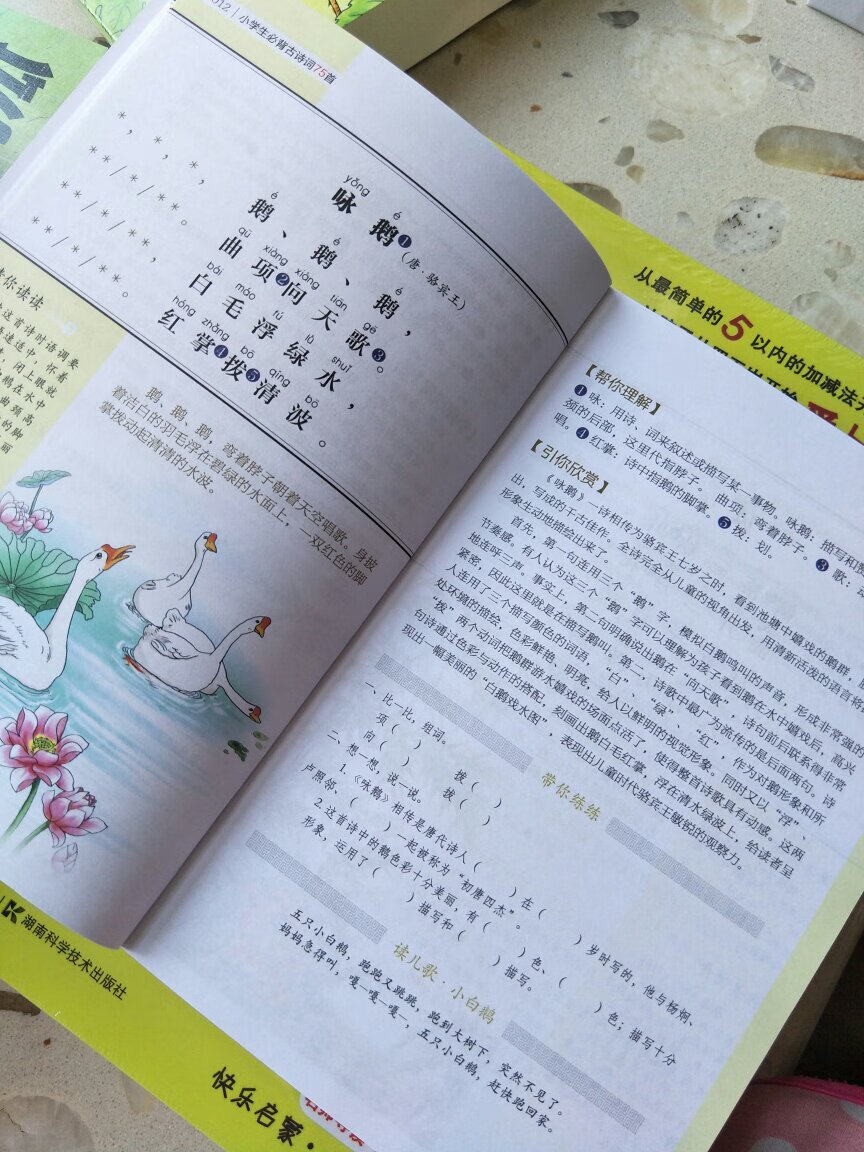 012 | 小学生必背古诗词75首
yǒng é
咏 鹅❶
(唐·骆宾王)
é é é
鹅、鹅、鹅，
qū xiàng xiàng tiān gē
曲项❷向天歌❸。
bái máo fú lǜ shuǐ
白毛浮绿水，
hóng zhǎng bō qīng bō
红掌❹拨❺清波。
*，*，*，
**/*/**。
**/*/**，
**/*/**。
你读读
这首诗时语调要
闭上眼就
鹅在水中
曲颈高
的脚
丽
鹅、鹅、鹅，弯着脖子朝着天空唱歌。身披
着洁白的羽毛浮在碧绿的水面上，一双红色的脚
掌拨动起清清的水波。
【帮你理解】
❶咏：用诗、词来叙述或描写某一事物。咏鹅：描写和
颈的后部，这里代指脖子。曲项：弯着脖子。❸歌：
唱。❹红掌：诗中指鹅的脚掌。❺拨：划。
【引你欣赏】
《咏鹅》一诗相传为骆宾王七岁之时，看到池塘中嬉戏的鹅群，
出，写成的千古佳作。全诗完全从儿童的视角出发，用清新活泼的语言将
形象生动地描绘出来了。
首先，第一句连用三个“鹅”字，模拟白鹅鸣叫的声音，形成非常强的
节奏感，有人认为这三个“鹅”字可以理解为孩子看到鹅在水中嬉戏后，高兴
地连呼三声。事实上，第二句明确说出鹅在“向天歌”，诗句前后联系得非常
紧密，因此这里就是在描写鹅叫。第二，诗歌中最广为流传的是后面两句。诗
人连用了三个描写颜色的词语，“白”、“绿”、“红”，作为对鹅形象和所
处环境的描绘，色彩鲜艳、明亮，给人以鲜明的视觉形象。同时又以“浮”、
“拨”两个动词把鹅群游水嬉戏的场面点活了，使得整首诗歌具有动感。这两
句诗通过色彩与动作的搭配，刻画出鹅白毛红掌，浮在清水绿波上，给读者呈
现出一幅美丽的“白鹅戏水图”，表现出儿童时代骆宾王敏锐的观察力。
带你练练
一、比一比，组词。
项（ ） 拨（ ）
向（ ） 披（ ）
二、想一想，说一说。
1.《咏鹅》相传是唐代诗人（ ）在（ ）岁时写的，他与杨炯、
卢照邻、（ ）一起被称为“初唐四杰”。
2.这首诗中的鹅色彩十分美丽，有（ ）色、（ ）色；描写十分
形象，运用了（ ）描写和（ ）描写。
读儿歌·小白鹅
五只小白鹅，跑跑又跳跳，跑到大树下，突然不见了。
妈妈急得叫，嘎—嘎—嘎—，五只小白鹅，赶快跑回家。
从最简单的5以内的加减法
湖南科学技术出版社
快乐启蒙·